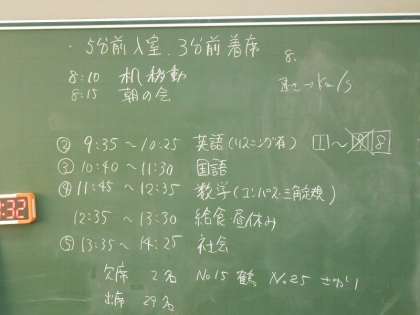 ・5分前入室、3分前着席
8.
8:10 机移動
8:15 朝の会
② 9:35～10:25 英語(リスニング有) 1～8
③ 10:40～11:30 国語
④ 11:45～12:35 数学(コンパス・三角定規)
:32
12:35～13:30 給食 昼休み
⑤ 13:35～14:25 社会
欠席 2名 No.15 鶴 No.25
出席 29名